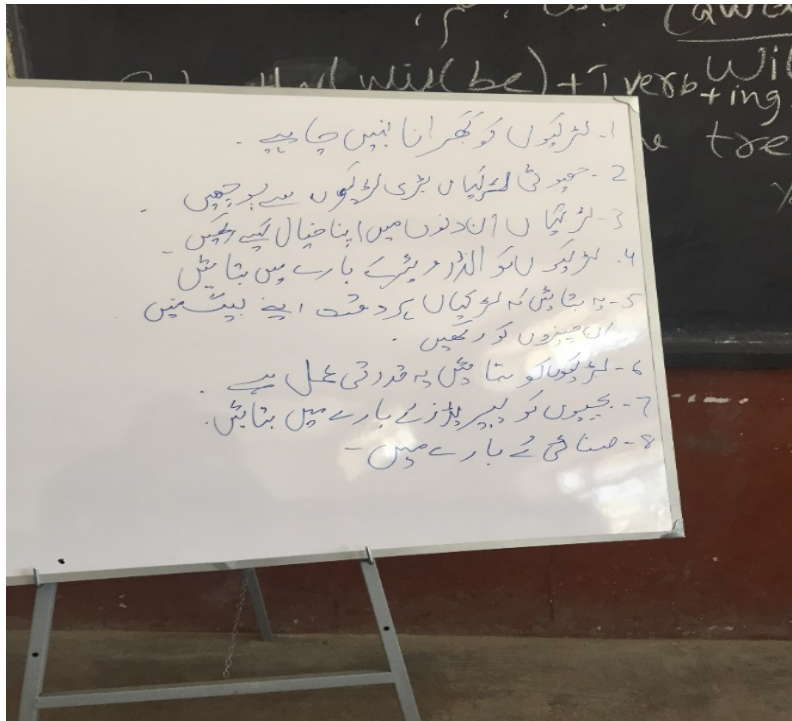 (be) + I verb + ing
Will
tre
1- لڑکیوں کو گھبرانا نہیں چاہیے۔
2- چھوٹی لڑکیاں بڑی لڑکیوں سے پوچھیں۔
3- لڑکیاں ان دنوں میں اپنا خیال کیسے رکھیں۔
4. لڑکیوں کو انڈر ویئر کے بارے میں بتائیں
5- یہ بتائیں کہ لڑکیاں ہر وقت اپنے بیگ میں
ان چیزوں کو رکھیں۔
6- لڑکیوں کو بتائیں یہ قدرتی عمل ہے۔
7- بچیوں کو پیڈز کے بارے میں بتائیں۔
8- صفائی کے بارے میں -